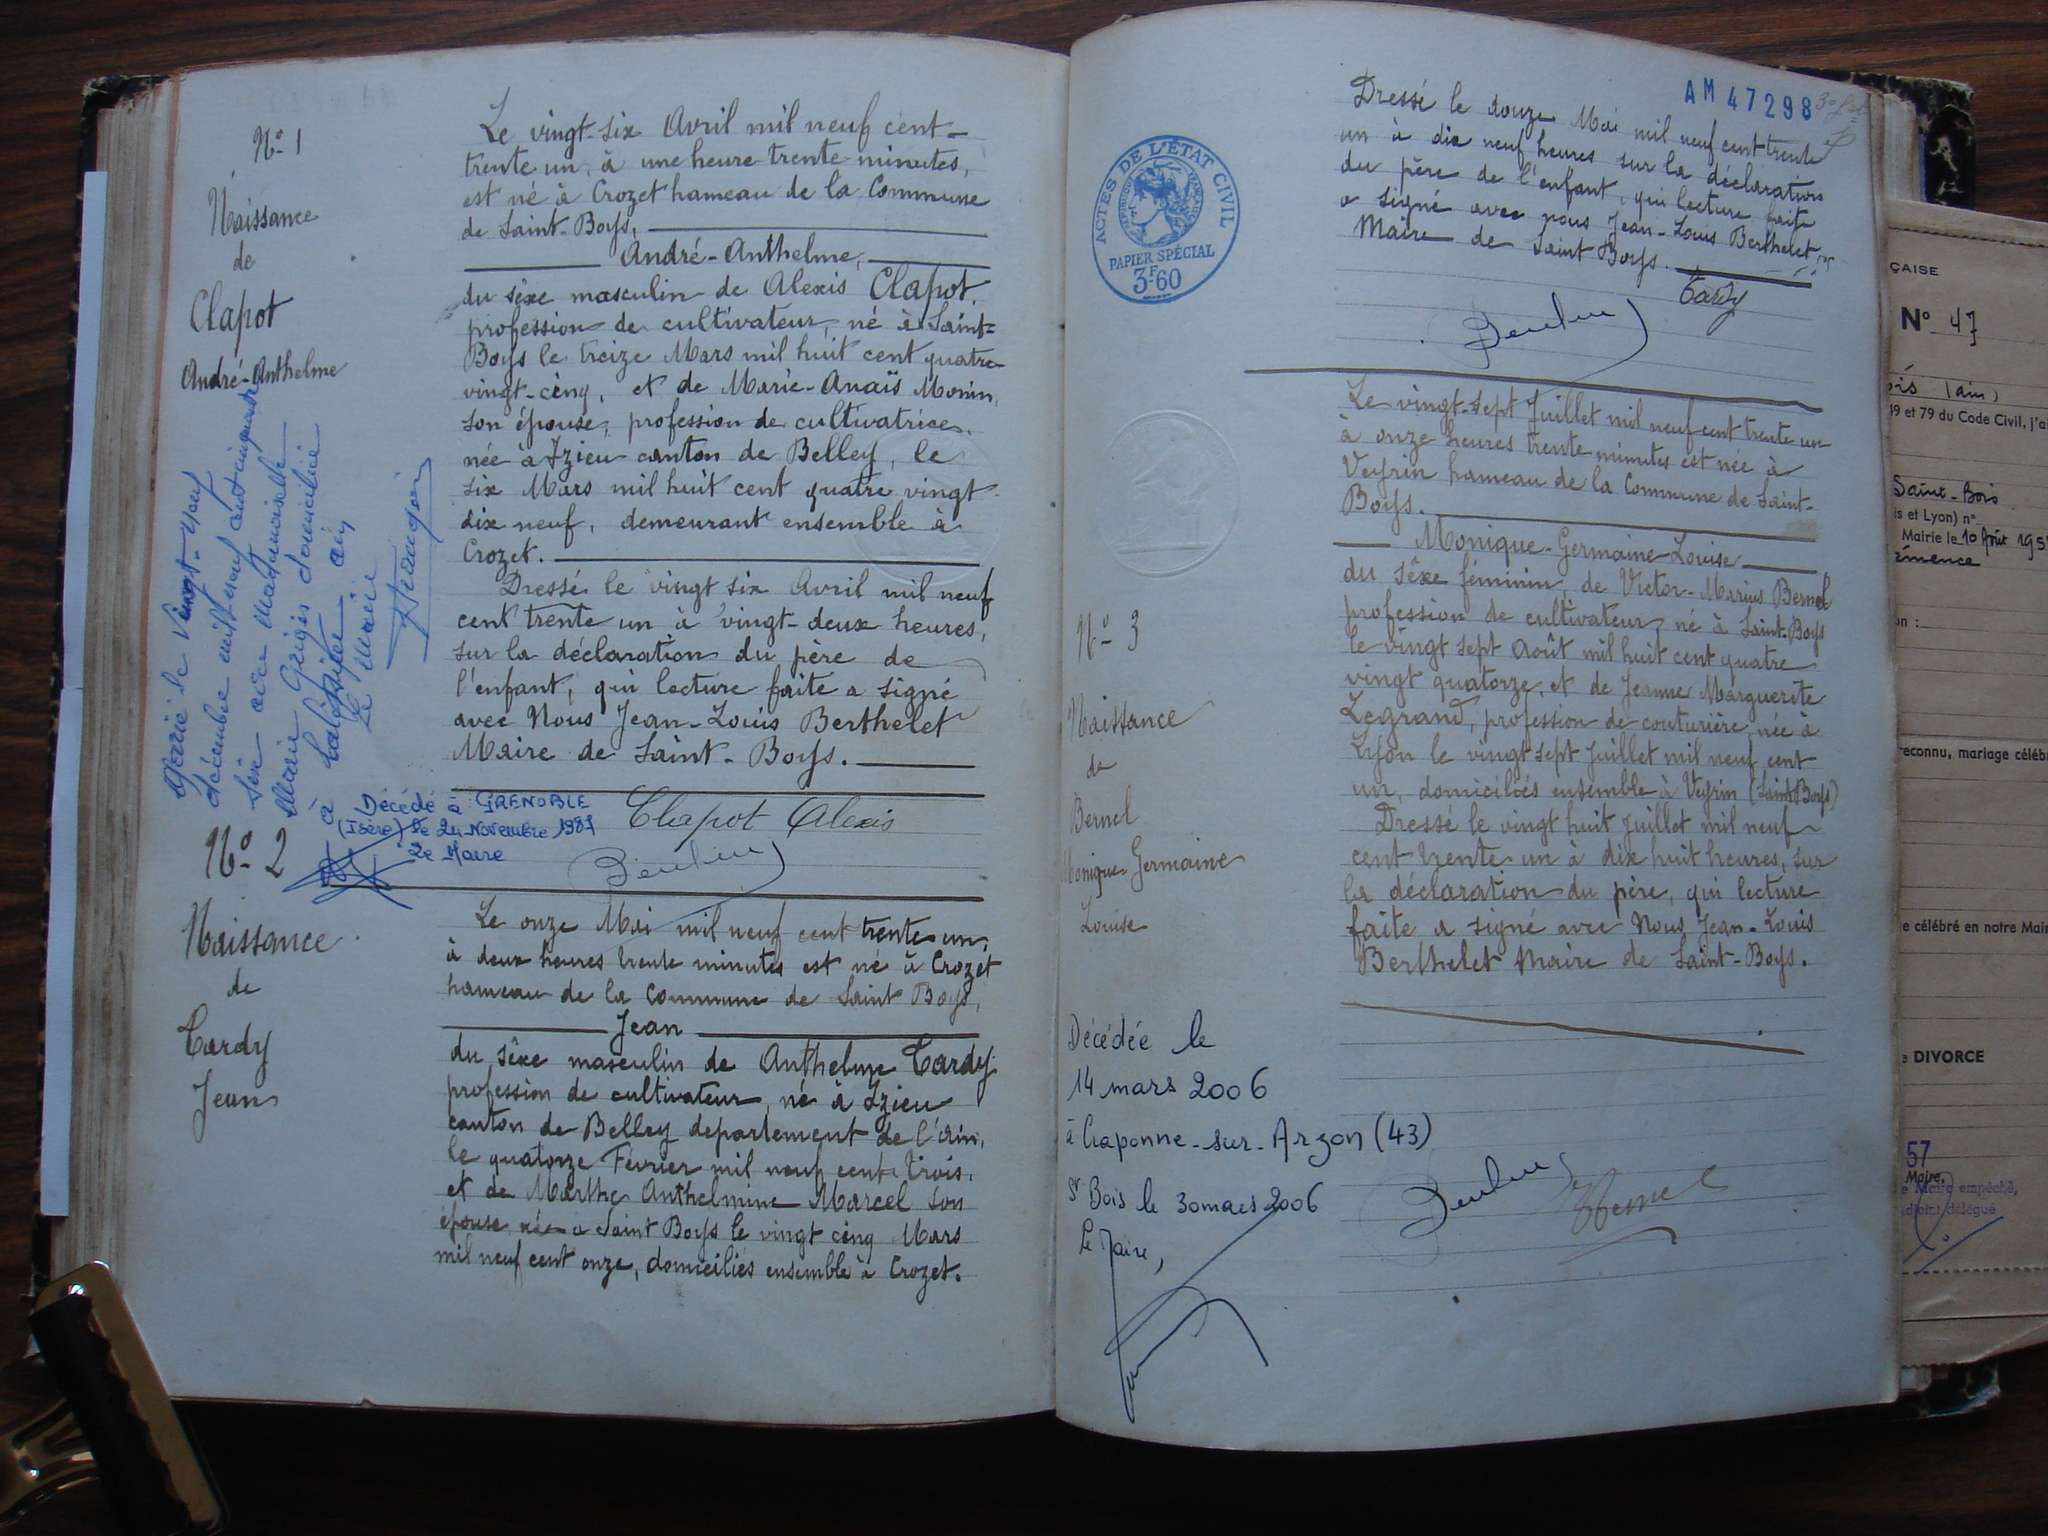 N° 1
Naissance
de
Clapot
André-Anthelme
Marié le Vingt-Neuf
décembre mil neuf cent cinquante
six avec Mademoiselle
Marie Grigis domiciliée
à
Le Maire
Décédé à GRENOBLE
(Isère) le 24 Novembre 1987
Le Maire
Le vingt-six Avril mil neuf cent-
trente un, à une heure trente minutes,
est né à Crozet hameau de la Commune
de Saint-Boys,
André-Anthelme,
du sêxe masculin de Alexis Clapot,
profession de cultivateur, né à Saint-
Boys le treize Mars mil huit cent quatre-
vingt-cinq, et de Marie-Anaïs Monin,
son épouse, profession de cultivatrice,
née à Izieu canton de Belley, le
six Mars mil huit cent quatre vingt
dix neuf, demeurant ensemble à
Crozet.
Dressé le vingt six Avril mil neuf
cent trente un à vingt-deux heures,
sur la déclaration du père de
l'enfant, qui lecture faite a signé
avec Nous Jean-Louis Berthelet
Maire de Saint-Boys.
Clapot Alexis
N° 2
Naissance
de
Tardy
Jean
Le onze Mai mil neuf cent trente un,
à deux heures trente minutes est né à Crozet
hameau de la Commune de Saint Boys,
Jean
du sêxe masculin de Anthelme Tardy
profession de cultivateur, né à Izieu
canton de Belley departement de l'Ain,
le quatorze Février mil neuf cent trois,
et de Marthe Anthelmine Marcel son
épouse, née a Saint Boys le vingt cinq Mars
mil neuf cent onze, domiciliés ensemble à Crozet.
AM 47298
ACTES DE L'ÉTAT CIVIL
PAPIER SPÉCIAL
3F.60
Dressé le douze Mai mil neuf cent trente
un à dix neuf heures sur la déclaration
du père de l'enfant, qui lecture faite
a signé avec nous Jean-Louis Berthelet,
Maire de Saint Boys.
Tardy
N° 3
Naissance
de
Bernel
Monique Germaine
Louise
Le vingt-sept Juillet mil neuf cent trente un
à onze heures trente minutes est née à
Veyrin hameau de la Commune de Saint-
Boys.
Monique-Germaine-Louise
du sêxe féminin, de Victor-Marius Bernel
profession de cultivateur, né à Saint-Boys
le vingt sept Août mil huit cent quatre
vingt quatorze et de Jeanne Marguerite
Legrand, profession de couturière, née à
Lyon le vingt sept Juillet mil neuf cent
un, domiciliés ensemble à Veyrin (Saint Boys)
Dressé le vingt huit Juillet mil neuf
cent trente un à dix huit heures, sur
la déclaration du père, qui lecture
faite a signé avec Nous Jean-Louis
Berthelet Maire de Saint-Boys.
Bernel
Décédée le
14 mars 2006
à Craponne-sur-Arzon (43)
St Bois le 30 mars 2006
Le Maire,
ÇAISE
N° 47
(ain)
49 et 79 du Code Civil, j'ai
Saint-Bois
is et Lyon) n°
Mairie le 10 Août 195
émence
on :
reconnu, mariage célébr
e célébré en notre Mair
e DIVORCE
57
Maire,
e Maire empêché,
djoint délégué